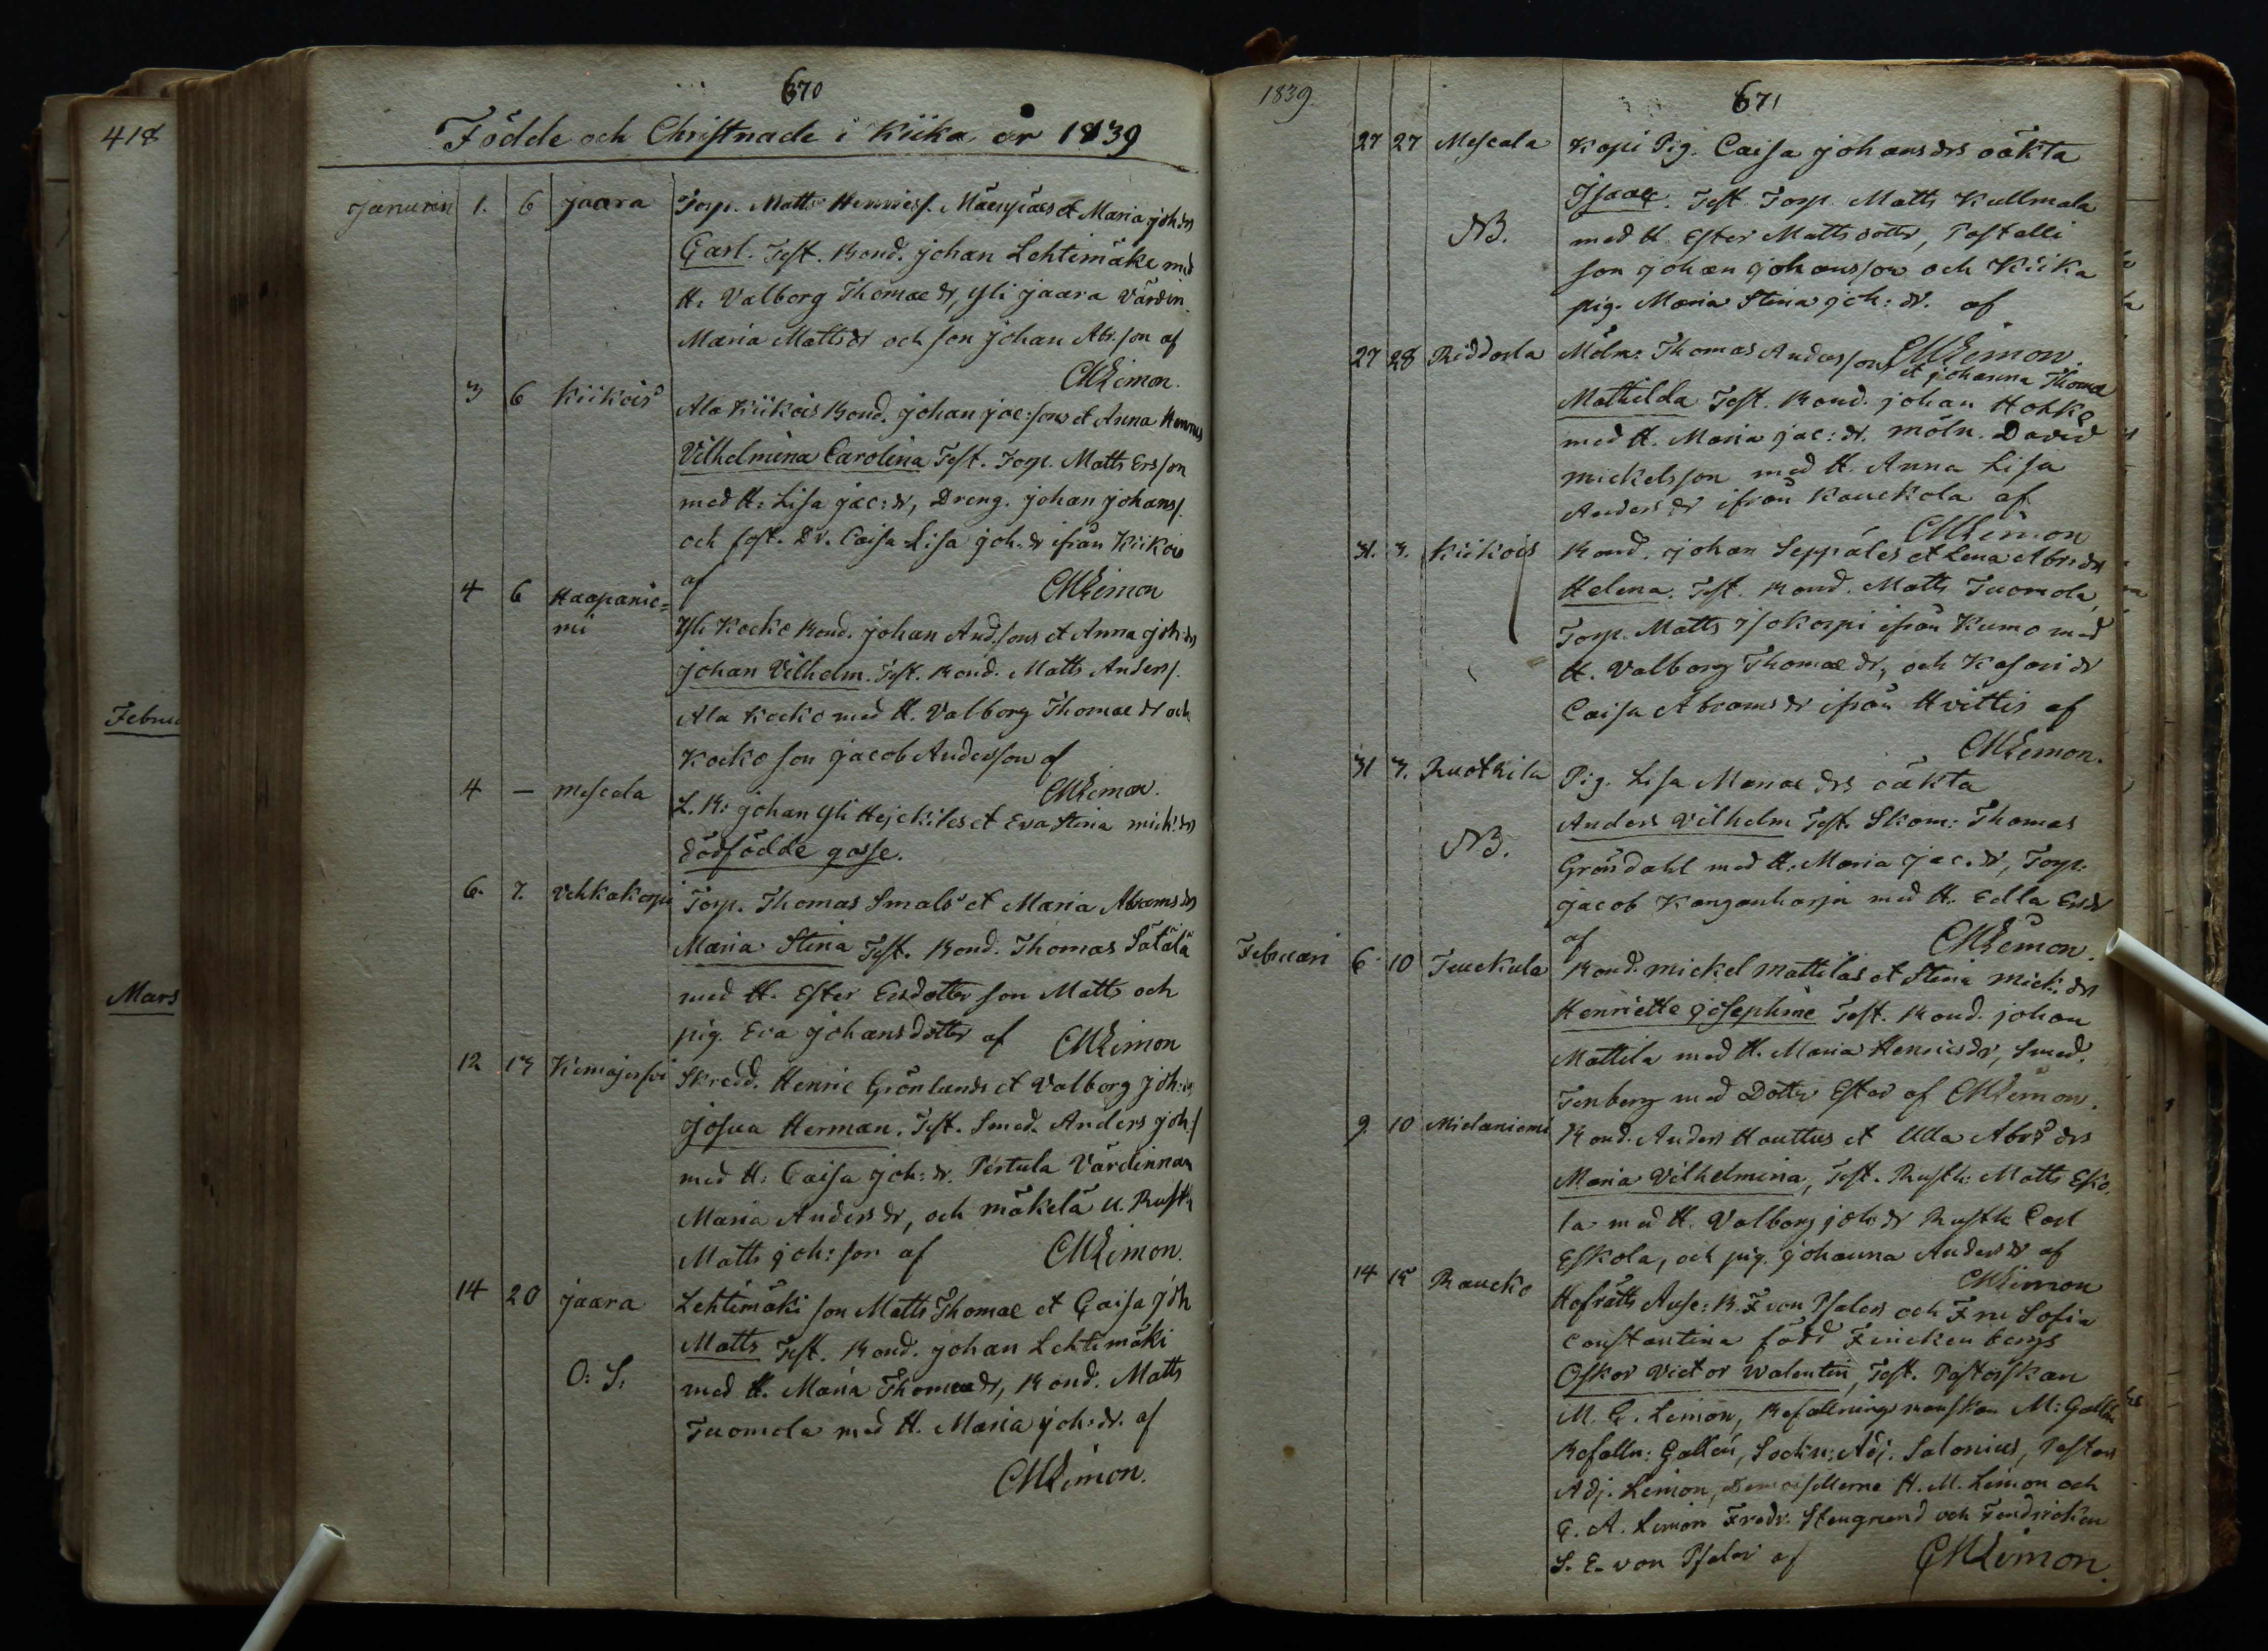 418
Februa
Mars
670
Födde och Christnade i Kiika år 1839
Januarii 1. 6 Jaara Torp. Matts Henrics. Mäenpäes et Maria Joh:drs
Carl. Test. Bond. Johan Lehtimäki med
H. Valborg Thomae dr, Yli Jaara värdin.
Maria Matts dr och son Johan Abr.son af
CMLimon.
3 6 Kiikois Ala Kiikois Bond. Johan Jac:sons et Anna Henrics
Vilhelmina Carolina Test. Torp. Matts Ersson
med H. Lisa Jac:dr, Dreng. Johan Johans/.
och fost. Dr. Caisa Lisa Joh:dr ifrån Kiikois
af CMLimon
4 6 Haapanie=
mi Yli Kocko Bond. Johan And.sons et Anna Joh:drs
Johan Vilhelm. Test. Bond. Matts Anders/.
Ala Kocko med H. Valborg Thomae dr och
Kocko son Jacob Andersson af
CMLimon.
4 — Mescala L.B: Johan Yli Hejckiles et Eva Stina Mich:drs
dödfödde gosse.
6. 7. Vehkakorpi Torp. Thomas Smals et Maria Abrams drs
Maria Stina Test. Bond. Thomas Sätälä
med H. Ester Ersdotter son Matts och
pig. Eva Johansdotter af CMLimon
12 13 Kimajersvi Skredd. Henric Grönlunds et Valborg Joh:drs
Josua Herman. Test. Smed. Anders Joh:/
med H. Caisa Joh:dr. Pertula Värdinnan
Maria Anders dr, och Mäkelä u. Rusth
Matts Joh:son af CMLimon.
14 20 Jaara Lehtimäki son Matts Thomae et Caisa Joh
O: S: Matts Test. Bond. Johan Lehtimäki
med H. Maria Thomae dr, Bond. Matts
Tuomola med H. Maria Joh:dr. af
CMLimon.
1839
671
27 27 Mescala Kopi Pig. Caisa Johans drs oäkta
Isaac. Test. Torp. Matts Kullmala
NB. med H. Ester Matts dotter, Pastelli
son Johan Johansson och Kiika
pig. Maria Stina Joh:dr. af
CMLimon.
27 28 Riddarla Möln. Thomas Anderssons et Johanna Thomae
Mathilda Test. Bond. Johan Hohko
med H. Maria Jac:dr. möln. David
Mickelsson med H. Anna Lisa
Anders dr ifrån Kauckola af
CMLimon
31. 3. Kiikois Bond. Johan Seppäles et Lena Abr:drs
Helena. Test. Bond. Matts Tuomola
Torp. Matts Isokorpi ifrån Kumo med
H. Valborg Thomae dr, och
Caisa Abrams dr ifrån Hvittis af
CMLimon.
31 3. Ruotsila Pig. Lisa Manae drs oäkta
Anders Vilhelm Test. Skom: Thomas
NB. Gröndahl med H. Maria Jac:dr, Torp.
Jacob Kanganharja med H. Edla Ersdr
af CMLimon.
Februari 6. 10 Teuckula Bond. Mickel Mattilas et Stina Mich:drs
Henriette Josephine Test. Bond. Johan
Mattila med H. Maria Henricsdr, Smed.
Tenberg med Dotter Ester af CMLimon.
9. 10 Mielaniemi Bond. Anders Hauttus et Ulla Abr:s drs
Maria Vilhelmina, Test. Rusth: Matts Esko,
la med H. Valborg Joh:dr Rusth Carl
Eskola, och pig. Johanna Anders dr af
CMLimon
14 15 Raucko Hofrätts Ausc: B. F von Pfalers och Fru Sofia
Constantina född Finckenbergs
Oskar Victor Walentin, Test. Pastorskan
M. C. Limon, Befallningsmanskan M: Gallén
Befalln: Gallén, Sockn: Adj. Salonius, Pastors
Adj. Limon, Demoisellerne H. M. Limon och
C. A. Limon Fredr. Stengrund och Fendricken
S. E. von Pfaler af CMLimon.